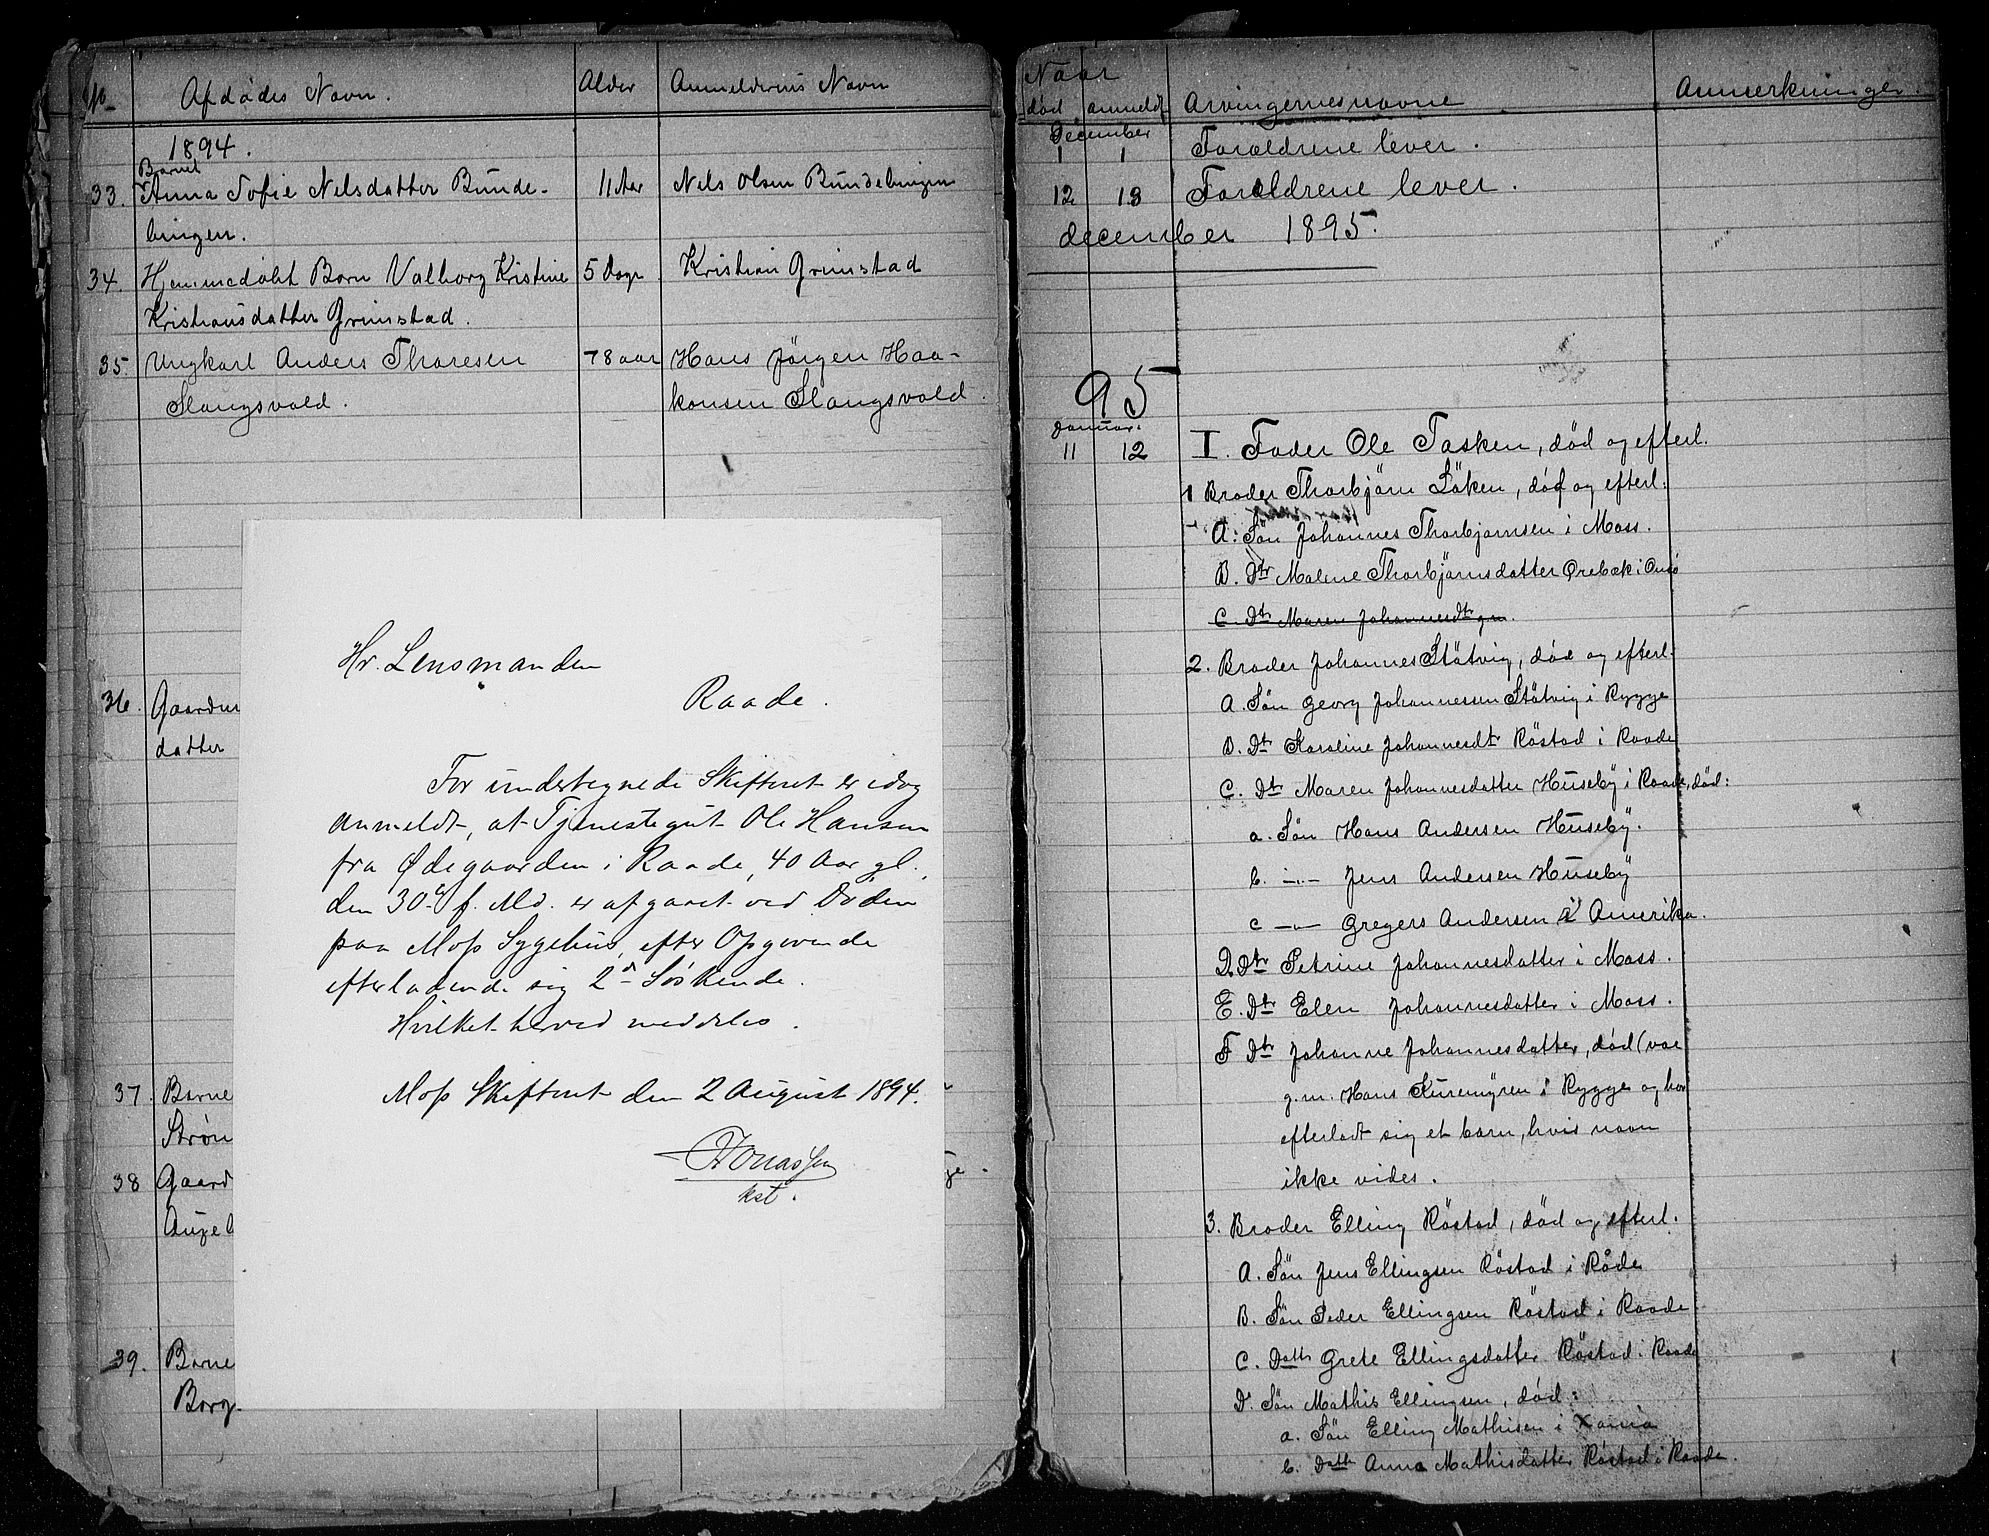 No
Afdødes Navn.
Alder
Anmelderens Navn
1894.
33. Barnet Anna Sofie Nelsdatter Bunde-
bingen.
11 Aar
Nels Olsen Bundebingen
34. Hjemmedøbt Barn Valborg Kristine
Kristiansdatter Grimstad.
5 Dage
Kristian Grimstad
35. Ungkarl Anders Thoresen
Slangsvold.
78 aar
Hans Jörgen Haa-
konsen Slangsvold.
36. Gaardm
datter
37. Barne
Strøm
38 Gaard
Auge
39. Barne
Borg
Hr. Lensmanden
Raade.
For undertegnede Skifteret er idag
anmeldt, at Tjenestegut Ole Hansen
fra Ødegaarden i Raade, 40 Aar gl.,
den 30te f. Md. er afgaaet ved Døden
paa Moss Sygehus, efter Opgivende
efterladende sig 2de Søskende.
Hvilket herved meddeles.
Moss Skifteret den 2 August 1894.
kst.
Naar
død anmeldt
Arvingernes navne
Anmerkninger.
December
1 1 Forældrene lever.
12 13 Forældrene lever.
december 1895.
95
Januar.
11 12 I. Fader Ole Tasken, död og efterl.
1 Broder Thorbjörn Löken, död og efterl:
A: Sön Johannes Thorbjørnsen i Moss.
B. Dtr Malene Thorbjörnsdatter Ørebæk i Onsö
C. Dtr Maren Johannesdtr gm.
2. Broder Johannes Støtvig, död og efterl:
A. Sön Georg Johannessen Støtvig i Rygge
B. Dtr Karoline Johannesdt Röstad i Raade
C. Dtr Maren Johannesdatter Huseby i Raade, död:
a. Sön Hans Andersen Huseby.
b. -"- Jens Andersen Huseby
c -"- Gregers Andersen i Amerika.
D. Dtr Petrine Johannesdatter i Moss.
E. Dtr Elen Johannesdatter i Moss.
F Dtr Johanne Johannesdatter, död (var
g.m. Hans Kuremyren i Rygge og har
efterladt sig et barn, hvis navn
ikke vides.
3. Broder Elling Röstad, död og efterl.
A. Sön Jens Ellingsen Röstad i Råde
B. Sön Peder Ellingsen Röstad i Raade
C. Datter Grete Ellingsdatter Röstad i Raade
D. Sön Mathis Ellingsen, död:
a. Sön Elling Mathisen i Xania
b. Datter Anna Mathisdatter Röstad i Raade.